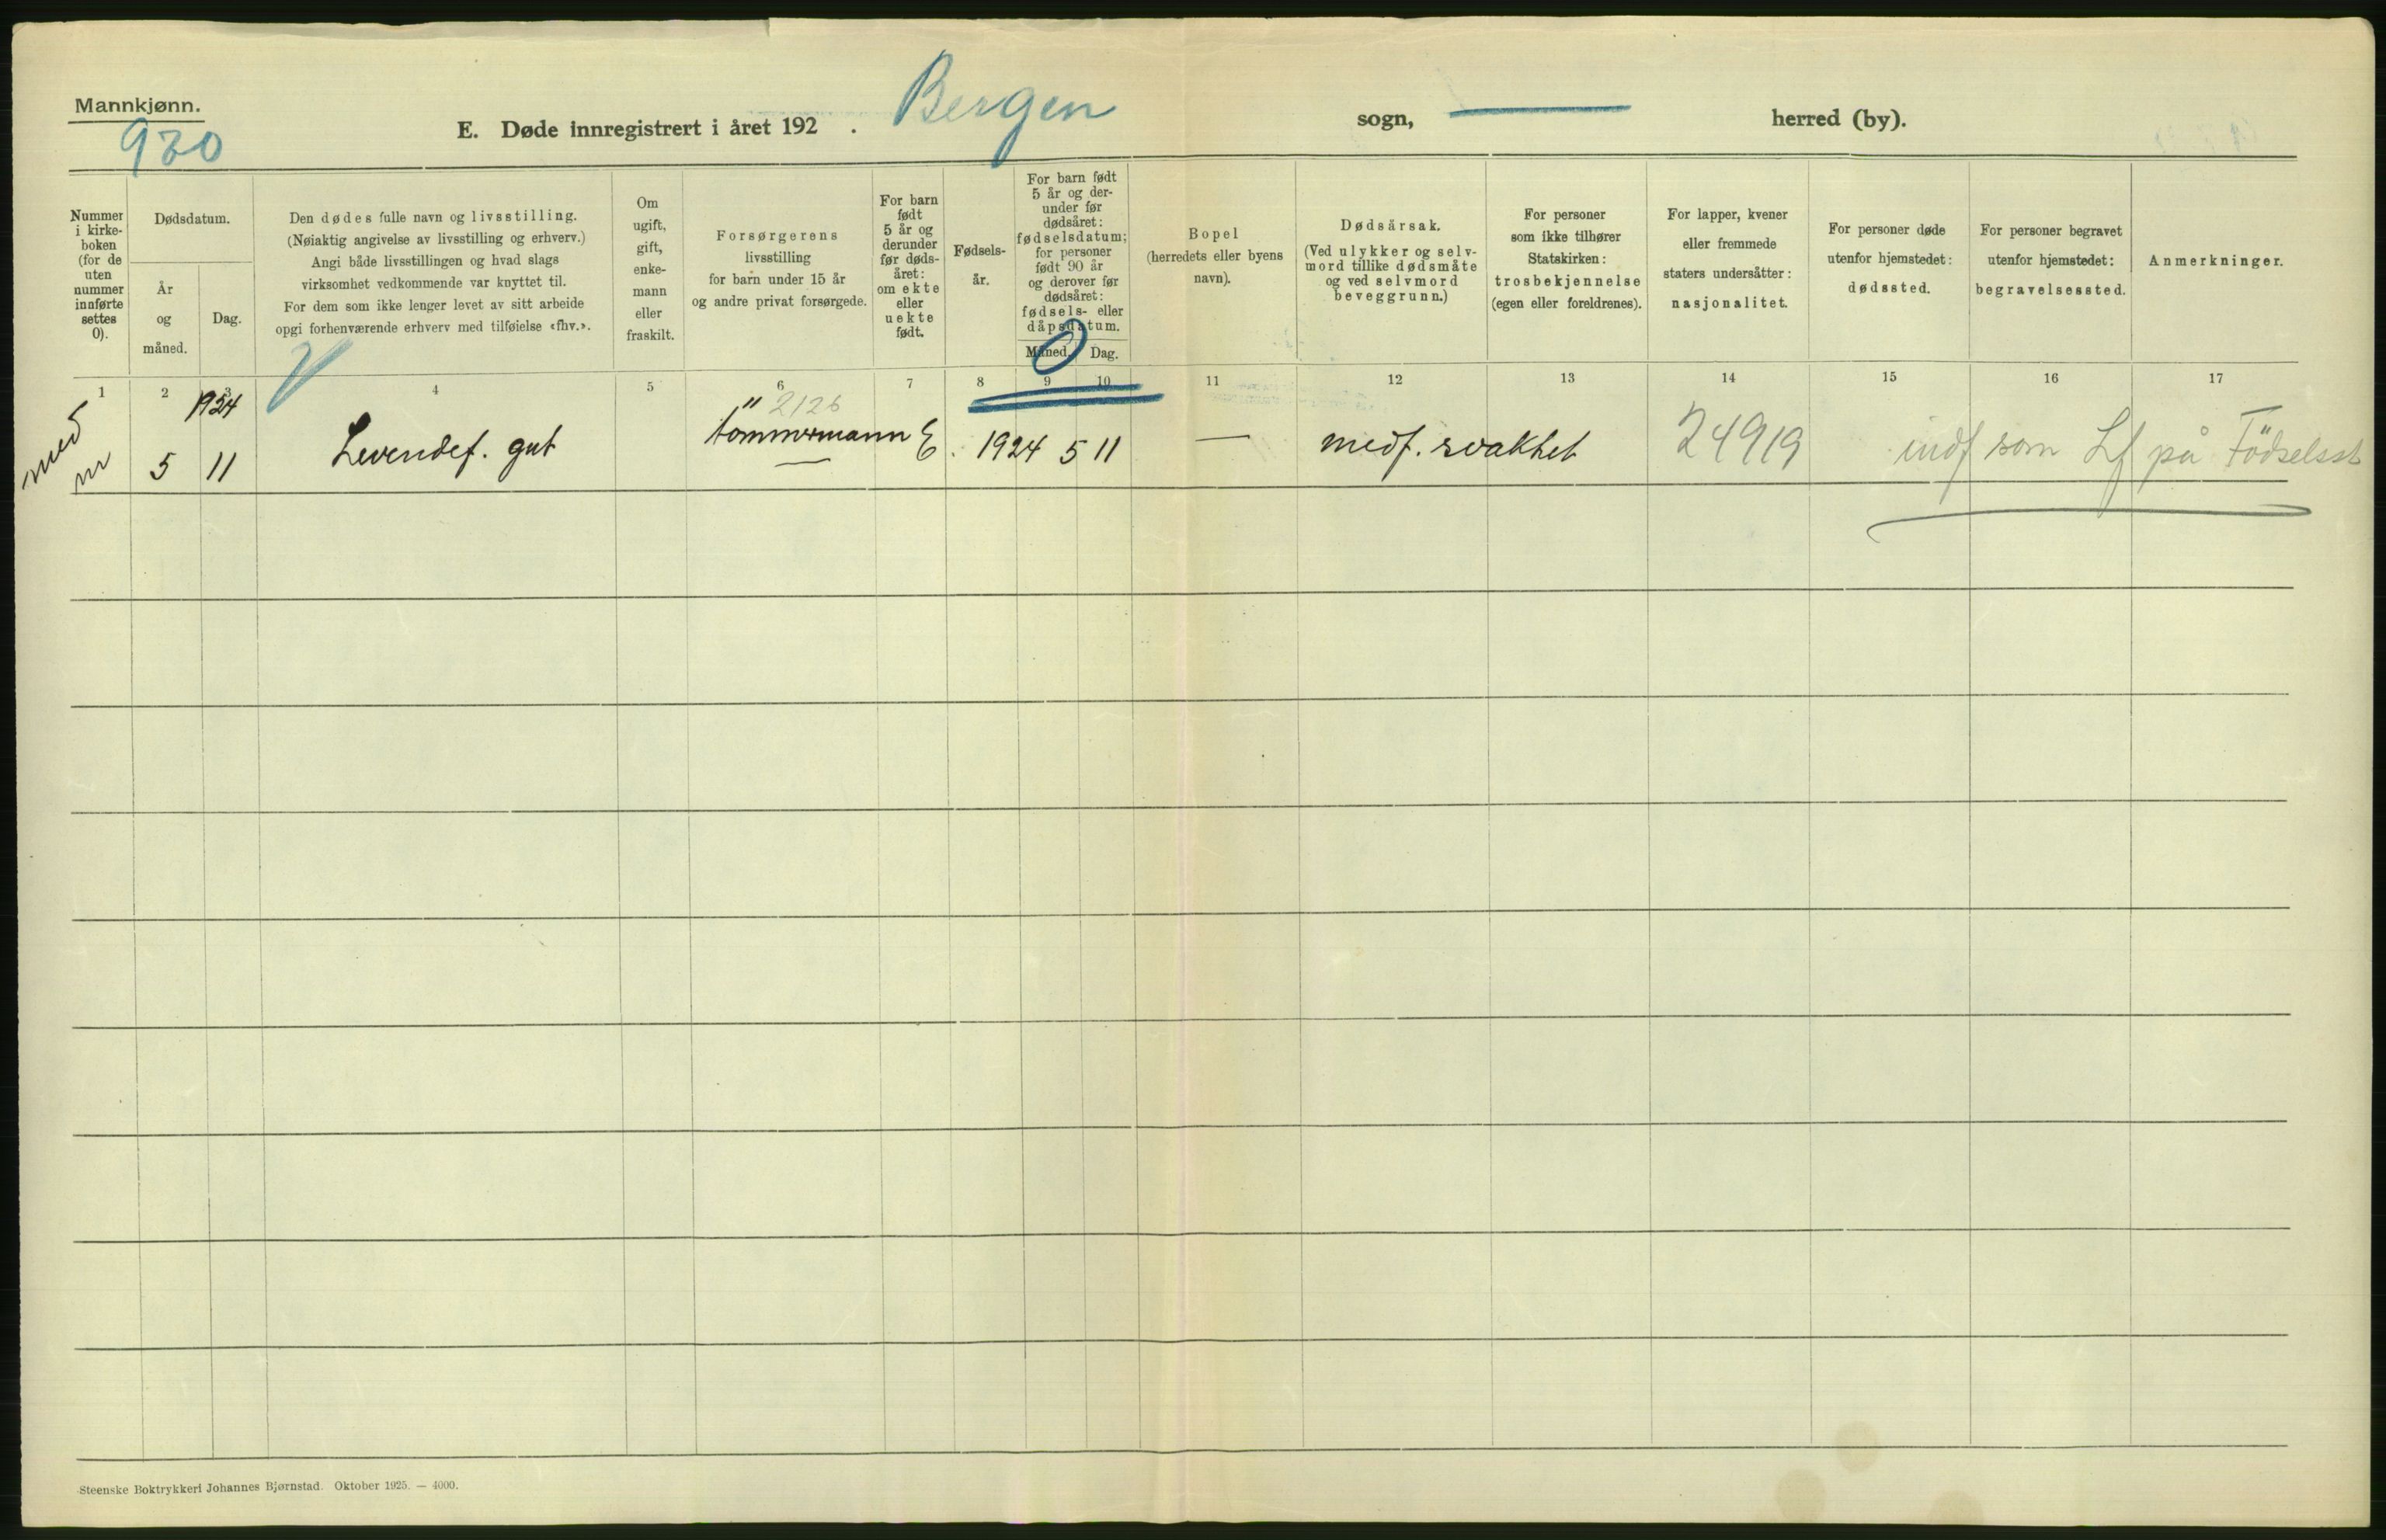 Mannkjønn.
E. Døde innregistrert i året 192 . Bergen sogn, herred (by).
Nummer i kirke- boken (for de uten nummer innførte settes 0).
Dødsdatum.
År og måned.
Dag.
Den dødes fulle navn og livsstilling.
(Nøiaktig angivelse av livsstilling og erhverv.)
Angi både livsstillingen og hvad slags
virksomhet vedkommende var knyttet til.
For dem som ikke lenger levet av sitt arbeide
opgi forhenværende erhverv med tilføielse «fhv.».
Om ugift, gift, enke- mann eller fraskilt.
Forsørgerens
livsstilling
for barn under 15 år
og andre privat forsørgede.
For barn født 5 år og derunder før døds- året: om ekte eller uekte født.
Fødsels- år.
For barn født 5 år og der- under før dødsåret: fødselsdatum; for personer født 90 år og derover før dødsåret: fødsels- eller dåpsdatum.
Måned. Dag.
0
Bopel
(herredets eller byens
navn).
Dødsårsak.
(Ved ulykker og selv-
mord tillike dødsmåte
og ved selvmord
beveggrunn.)
For personer
som ikke tilhører
Statskirken:
trosbekjennelse
(egen eller foreldrenes).
For lapper, kvener
eller fremmede
staters undersåtter:
nasjonalitet.
For personer døde
utenfor hjemstedet:
dødssted.
For personer begravet
utenfor hjemstedet:
begravelsessted.
Anmerkninger.
1 2 3 4 5 6 7 8 9 10 11 12 13 14 15 16 17
1924
" 2126
5 11 Levendef. gut tømmermann E. 1924 5 11 — medf. svakhet 24919 indf som Lf på Födselsst
Steenske Boktrykkeri Johannes Bjørnstad. Oktober 1925. — 4000.